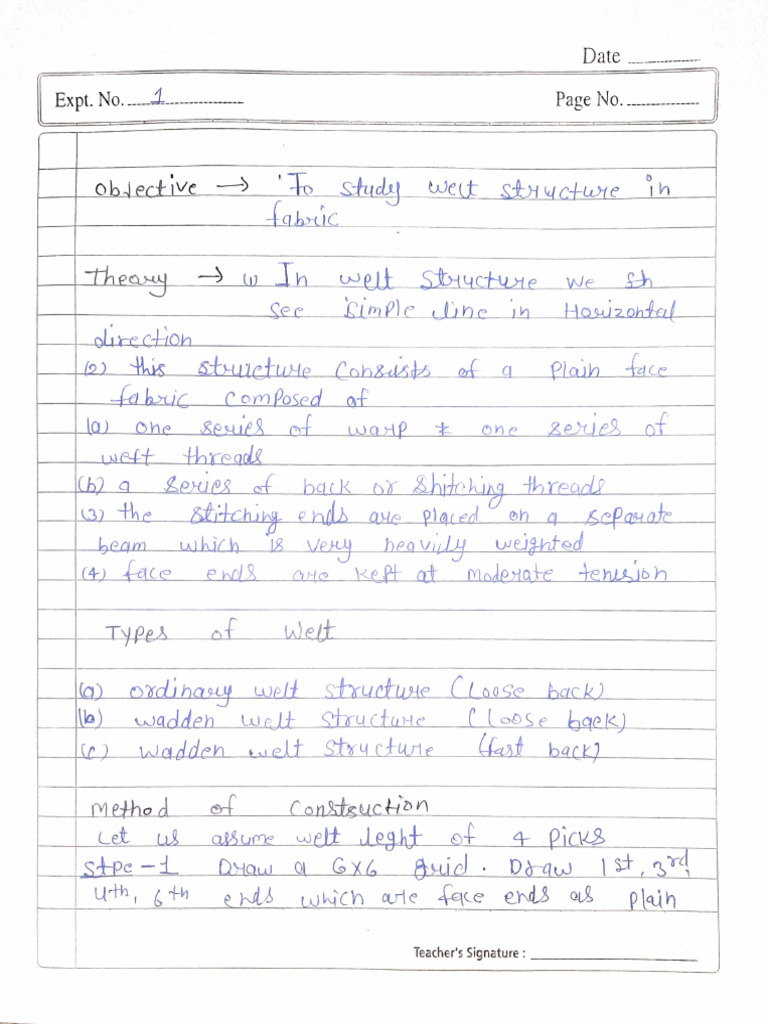 Date
Expt. No. 1 Page No.
Objective → 'To study welt structure in
fabric
Theory → (1) In welt structure we
see simple line in Horizontal
direction
(2) this structure consists of a plain face
fabric composed of
(a) one series of warp & one series of
weft threads
(b) a series of back or shitching threads
(3) the stitching ends are placed on a separate
beam which is very heavily weighted
(4) face ends are kept at moderate tension
Types of Welt
(a) ordinary welt structure (Loose back)
(b) wadden welt structure (loose back)
(c) wadden welt structure (fast back)
Method of Construction
Let us assume welt leght of 4 picks
Stpe-1 Draw a 6x6 grid. Draw 1st, 3rd,
4th, 6th ends which are face ends as plain
Teacher's Signature :